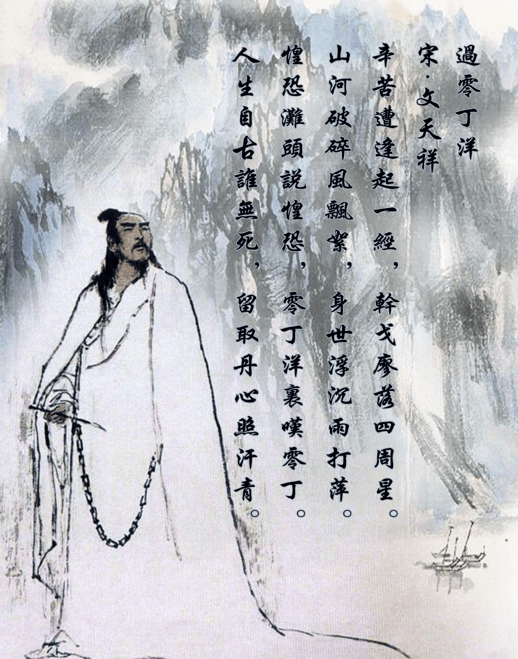 過零丁洋
宋·文天祥
辛苦遭逢起一經，幹戈廖落四周星。
山河破碎風飄絮，身世浮沉雨打萍。
惶恐灘頭説惶恐，零丁洋裏嘆零丁。
人生自古誰無死，留取丹心照汗青。